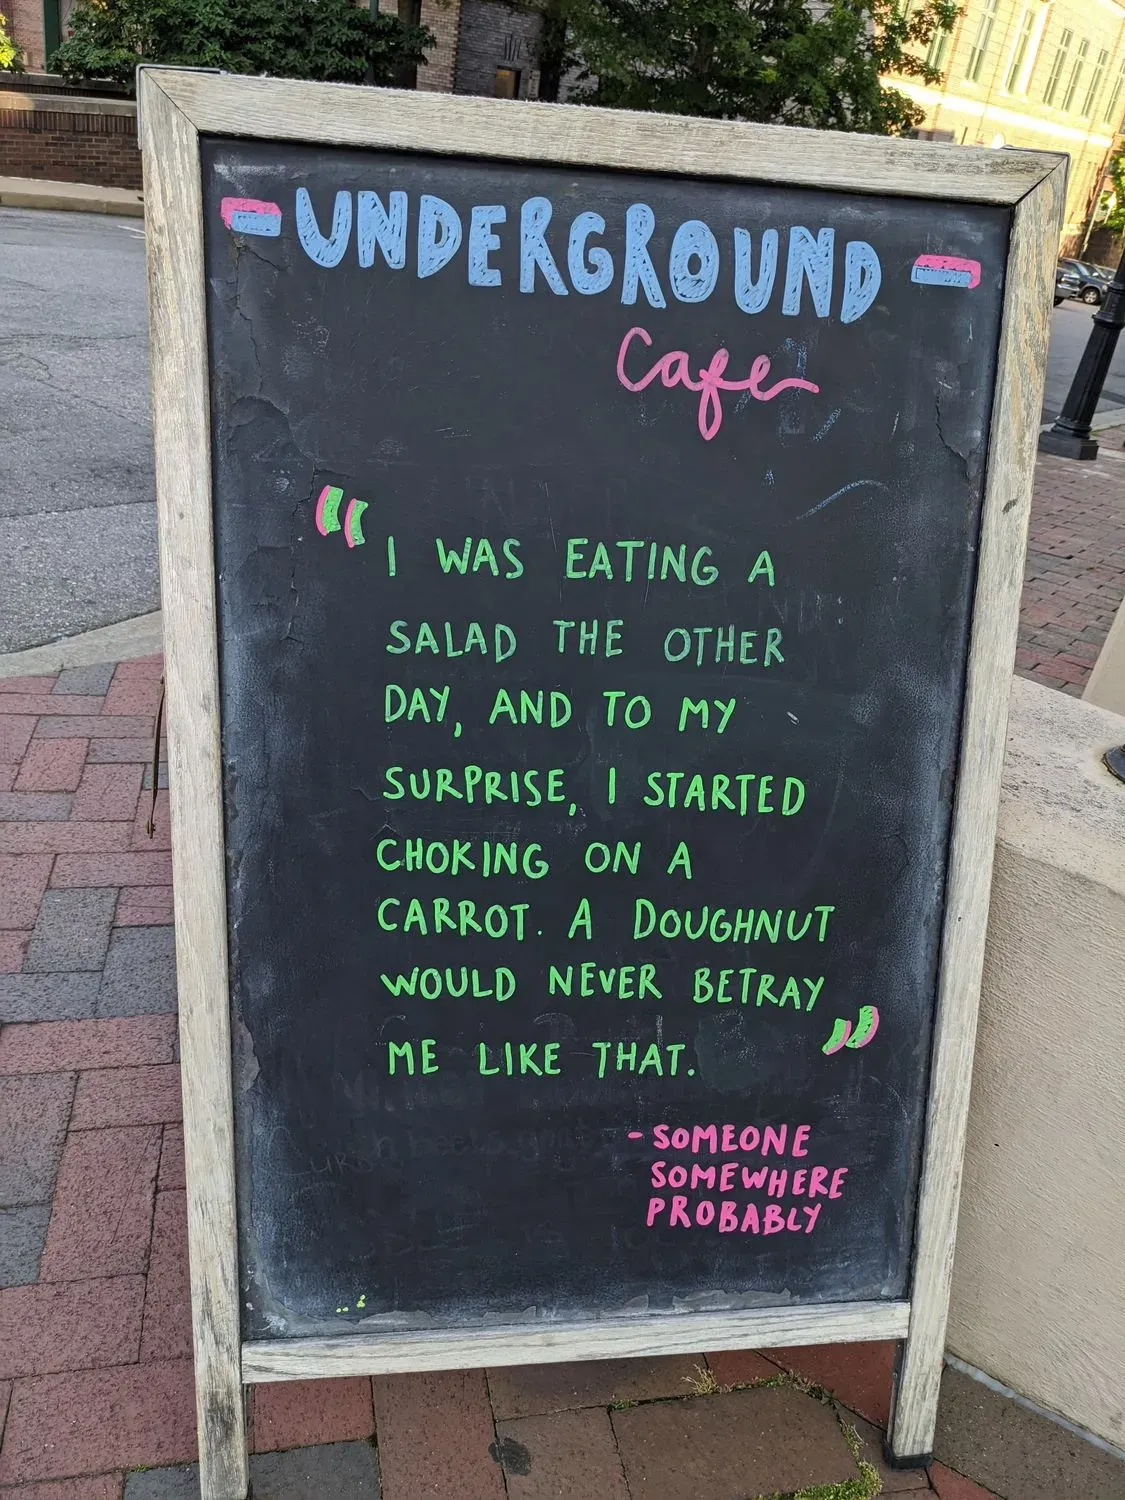 - UNDERGROUND -
Cafe
“ I WAS EATING A
SALAD THE OTHER
DAY, AND TO MY
SURPRISE, I STARTED
CHOKING ON A
CARROT. A DOUGHNUT
WOULD NEVER BETRAY
ME LIKE THAT. ”
- SOMEONE
SOMEWHERE
PROBABLY